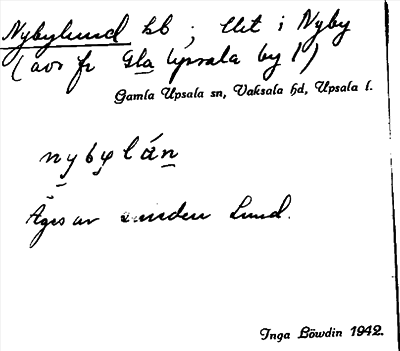 Nybylund hb ; llit i Nyby
(avs fr Gla Upsala by 1)
Gamla Upsala sn, Vaksala hd, Upsala l.
nybylán
Äges av Lund.
Inga Löwdin 1942.